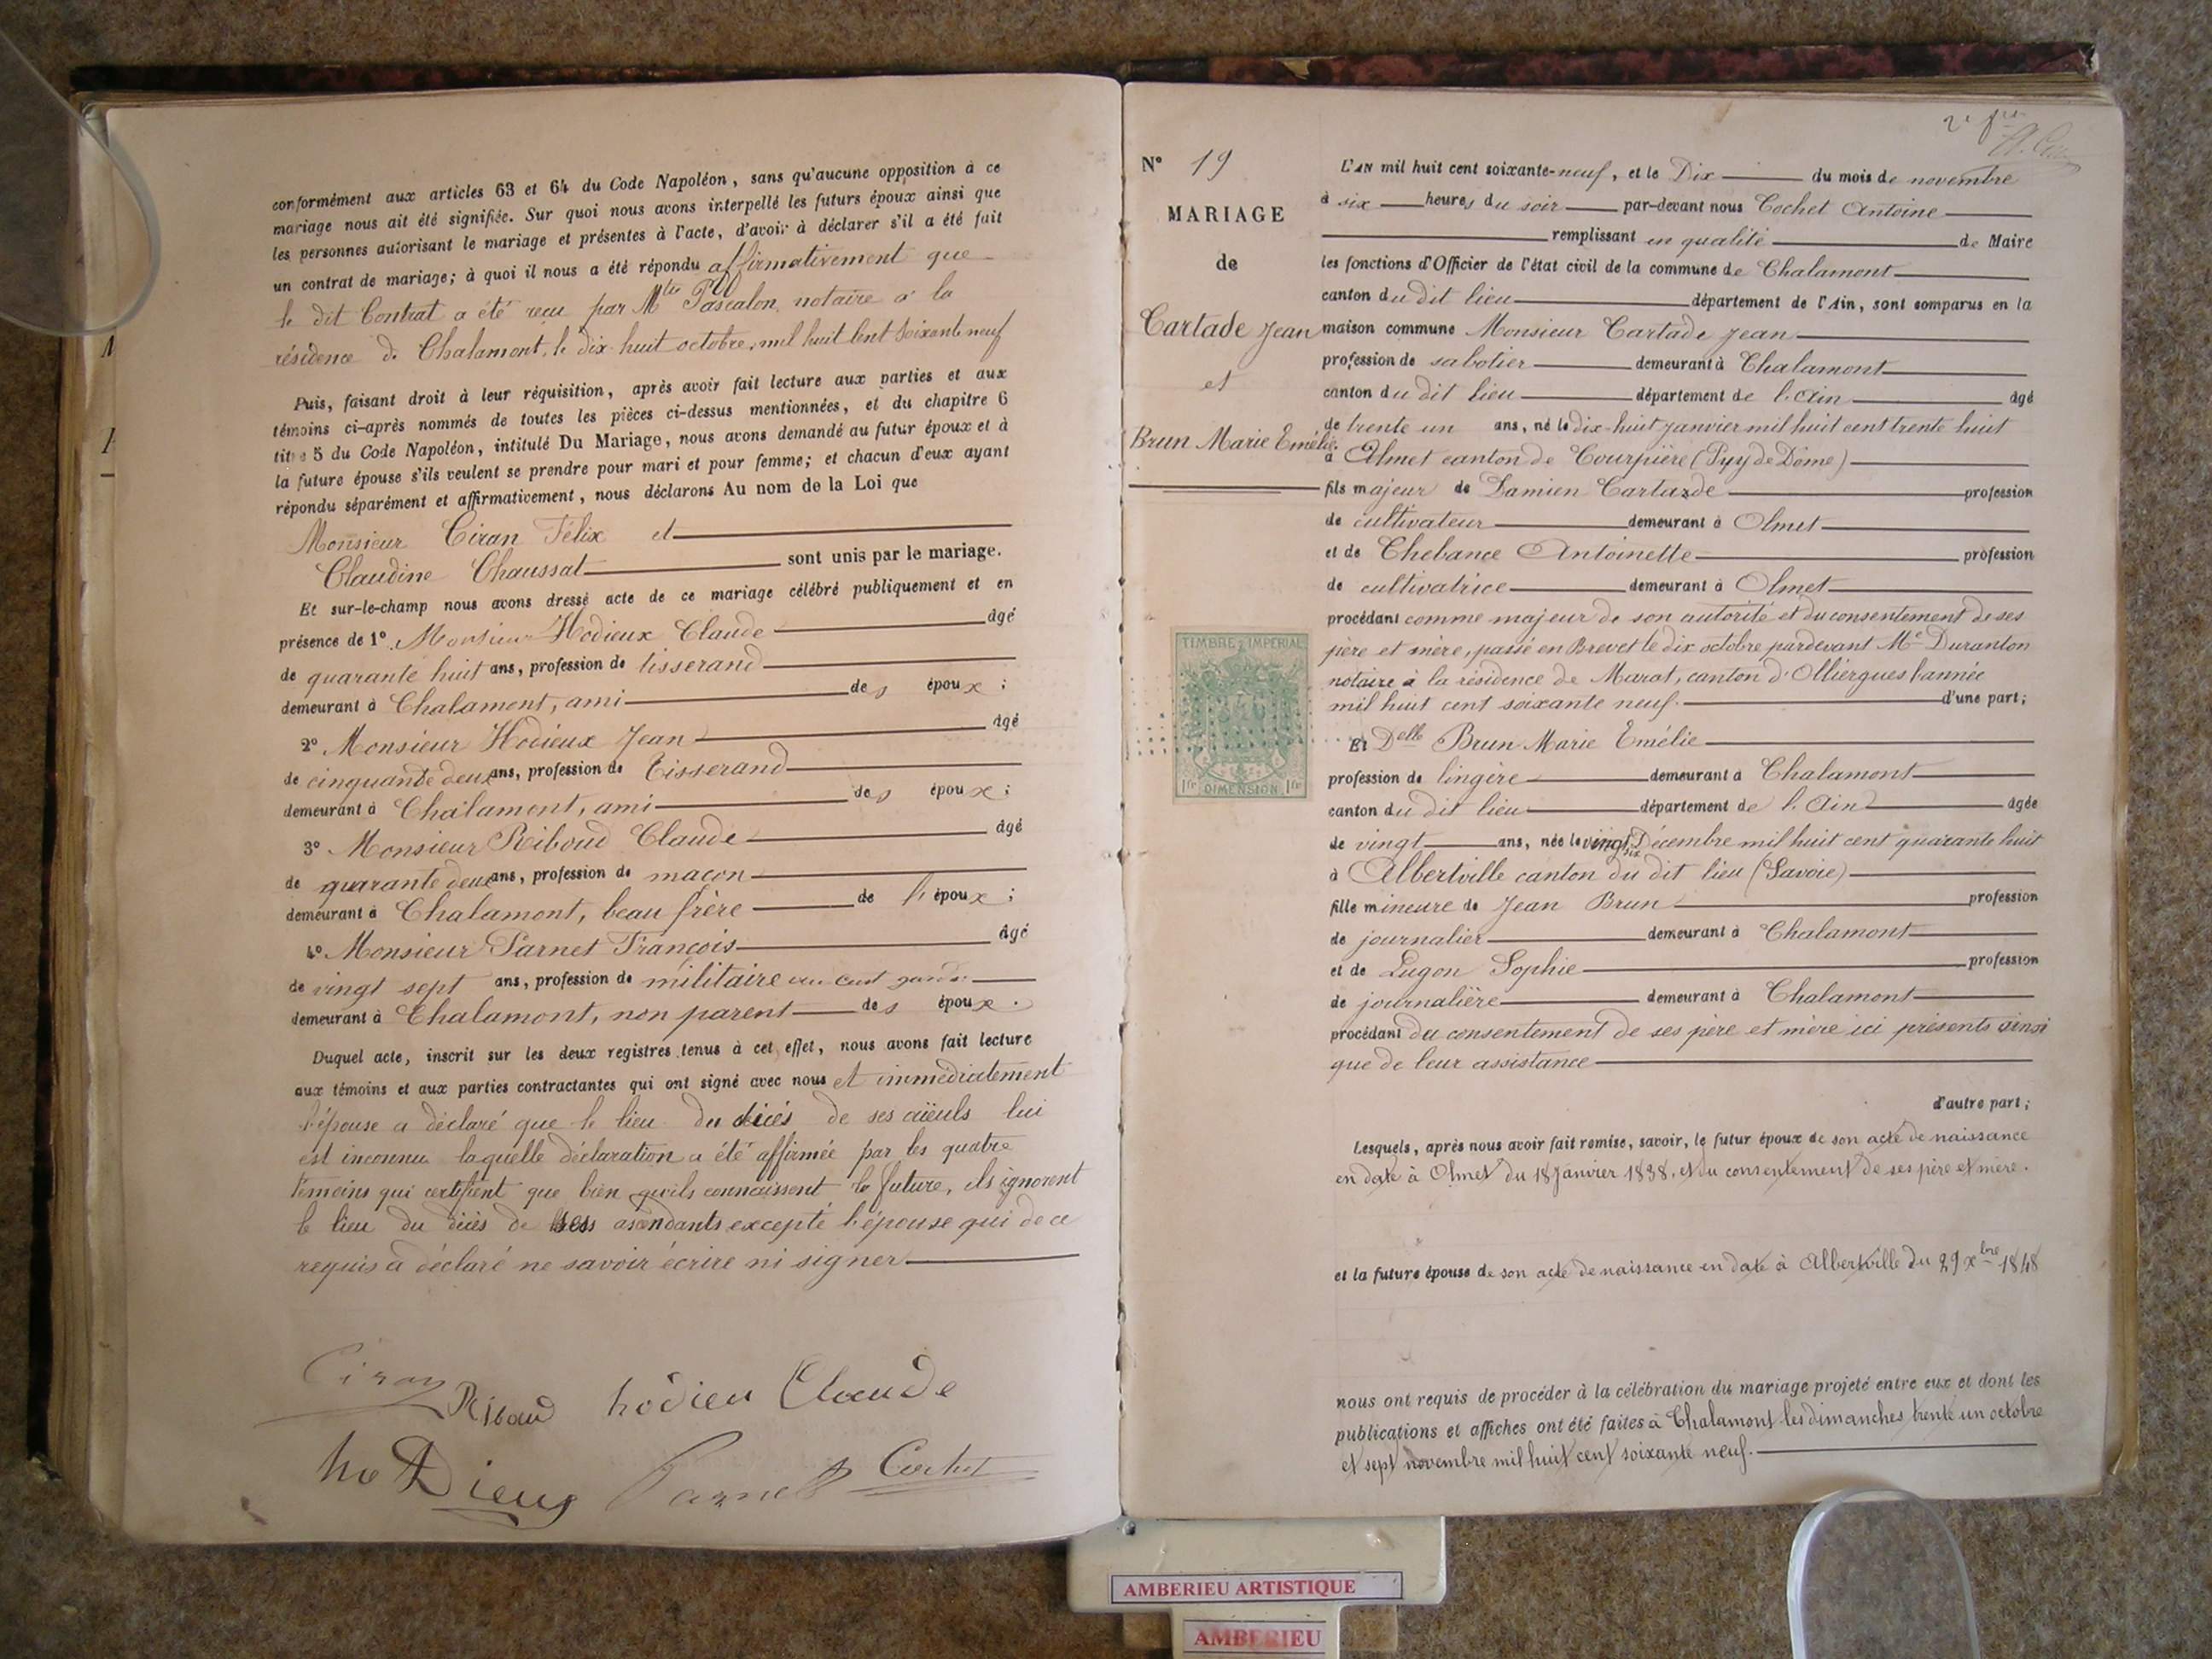 conformément aux articles 63 et 64 du Code Napoléon, sans qu'aucune opposition à ce
mariage nous ait été signifiée. Sur quoi nous avons interpellé les futurs époux ainsi que
les personnes autorisant le mariage et présentes à l'acte, d'avoir à déclarer s'il a été fait
un contrat de mariage; à quoi il nous a été répondu affirmativement que
le dit Contrat a été reçu par Mtre Pascalon, notaire à la
résidence de Chalamont, le dix-huit octobre, mil huit Cent Soixante neuf
Puis, faisant droit à leur réquisition, après avoir fait lecture aux parties et aux
témoins ci-après nommés de toutes les pièces ci-dessus mentionnées, et du chapitre 6
titre 5 du Code Napoléon, intitulé Du Mariage, nous avons demandé au futur époux et à
la future épouse s'ils veulent se prendre pour mari et pour femme; et chacun d'eux ayant
répondu séparément et affirmativement, nous déclarons Au nom de la Loi que
Monsieur Ciran Félix et
Claudine Chaussat sont unis par le mariage.
Et sur-le-champ nous avons dressé acte de ce mariage célébré publiquement et en
présence de 1° Monsieur Hodieux Claude âgé
de quarante huit ans, profession de tisserand
demeurant à Chalamont, ami des époux;
2° Monsieur Hodieux Jean âgé
de cinquante deux ans, profession de Tisserand
demeurant à Chalamont, ami des époux;
3° Monsieur Riboud Claude âgé
de quarante deux ans, profession de maçon
demeurant à Chalamont, beau frère de l'époux;
4° Monsieur Parnet François âgé
de vingt sept ans, profession de militaire au cent gardes
demeurant à Chalamont, non parent des époux.
Duquel acte, inscrit sur les deux registres tenus à cet effet, nous avons fait lecture
aux témoins et aux parties contractantes qui ont signé avec nous et immédiatement
l'épouse a déclaré que le lieu du décés de ses aïeuls lui
est inconnu laquelle déclaration a été affirmée par les quatre
témoins qui certifient que bien qu'ils connaissent la future, ils ignorent
le lieu du décès de ses ascendants excepté l'épouse qui de ce
requis a déclaré ne savoir écrire ni signer
Ciran Riboud hodieu Claude
hodieux Parnet Cochet
N° 19
MARIAGE
de
Cartade Jean
et
Brun Marie Emélie
TIMBRE IMPERIAL
1fr DIMENSION 1fr
L'AN mil huit cent soixante-neuf, et le Dix du mois de novembre
à six heures du soir par-devant nous Cochet Antoine
remplissant en qualité de Maire
les fonctions d'Officier de l'état civil de la commune de Chalamont
canton du dit lieu département de l'Ain, sont comparus en la
maison commune Monsieur Cartade Jean
profession de sabotier demeurant à Chalamont
canton du dit lieu département de l'Ain âgé
de trente un ans, né le dix-huit janvier mil huit cent trente huit
à Olmet canton de Courpière (Puy de Dôme)
fils majeur de Damien Cartade profession
de cultivateur demeurant à Olmet
et de Chebance Antoinette profession
de cultivatrice demeurant à Olmet
procédant comme majeur de son autorité et du consentement de ses
père et mère, passé en Brevet le dix octobre pardevant Me Duranton
notaire à la résidence de Marat, canton d'Olliergues l'année
mil huit cent soixante neuf. d'une part;
Et Delle Brun Marie Emélie
profession de lingère demeurant à Chalamont
canton du dit lieu département de l'Ain âgée
de vingt ans, née le vingt six Décembre mil huit cent quarante huit
à Albertville canton du dit lieu (Savoie)
fille mineure de Jean Brun profession
de journalier demeurant à Chalamont
et de Lugon Sophie profession
de journalière demeurant à Chalamont
procédant du consentement de ses père et mère ici présents ainsi
que de leur assistance
d'autre part;
Lesquels, après nous avoir fait remise, savoir, le futur époux de son acte de naissance
en date à Olmet du 18 Janvier 1838, et du consentement de ses père et mère.
et la future épouse de son acte de naissance en date à Albertville du 29 xbre 1848
nous ont requis de procéder à la célébration du mariage projeté entre eux et dont les
publications et affiches ont été faites à Chalamont les dimanches trente un octobre
et sept novembre mil huit cent soixante neuf.
AMBERIEU ARTISTIQUE
AMBERIEU